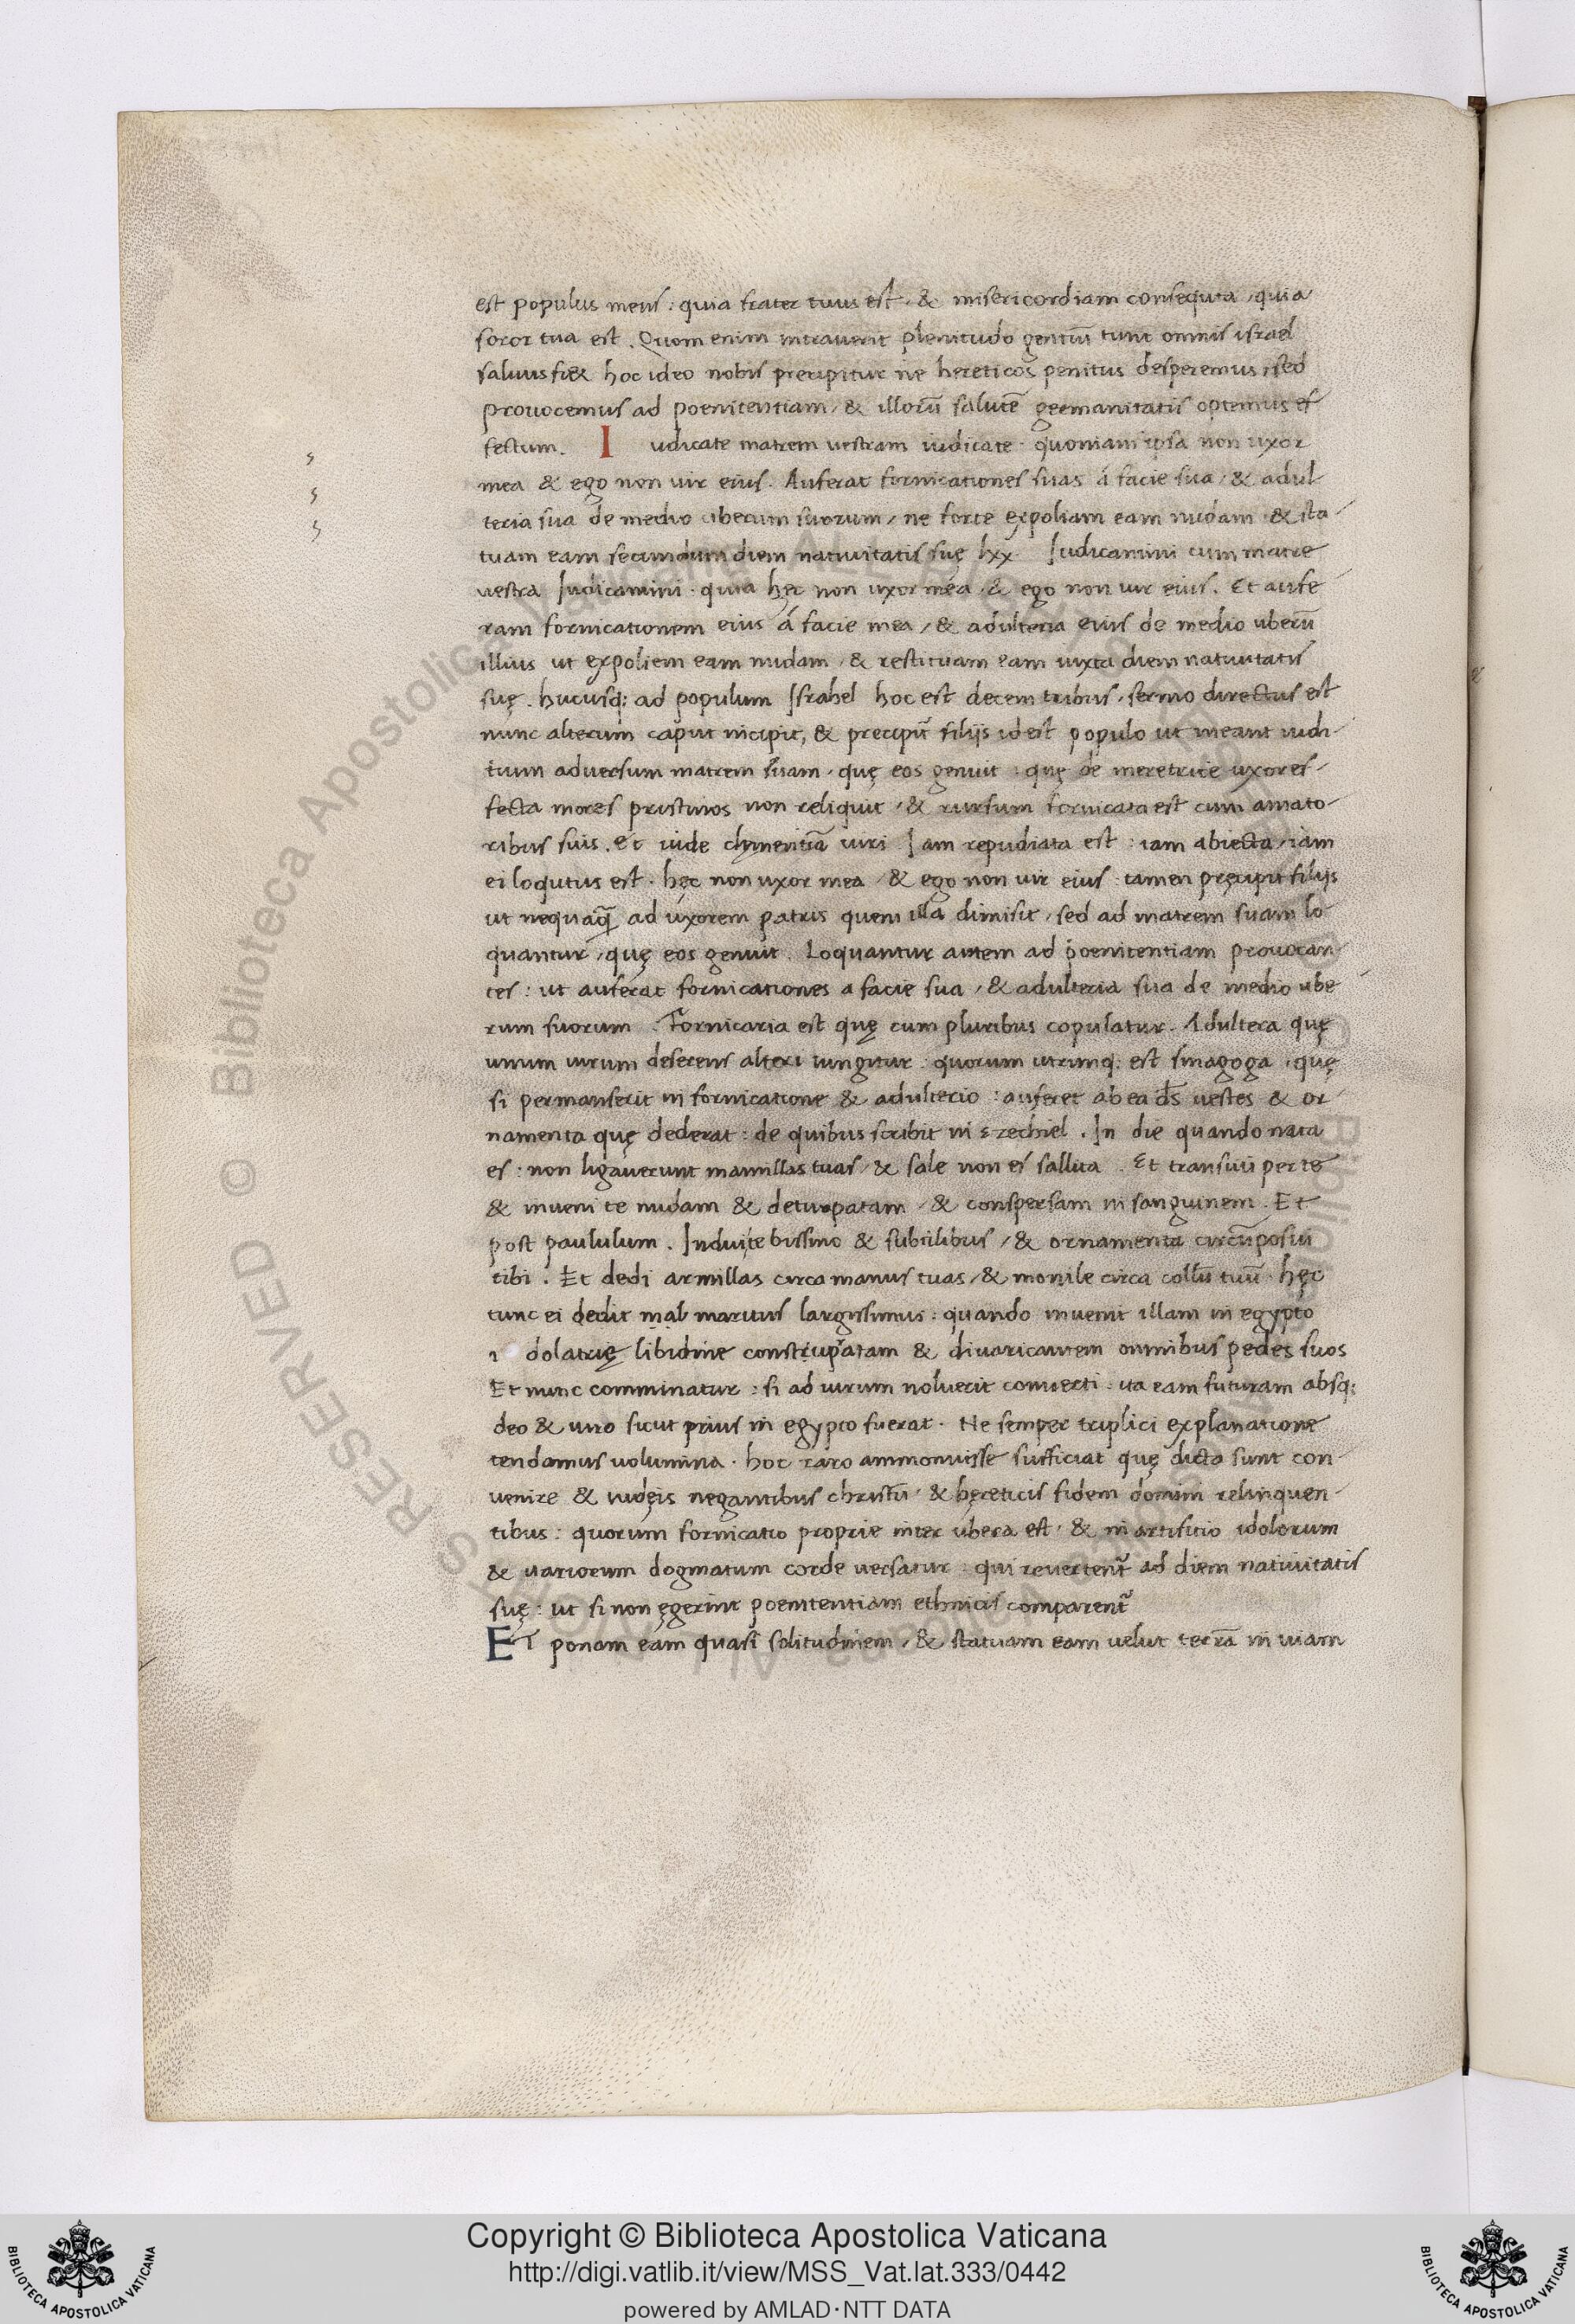 est populus meus : quia frater tuus est · & misericordiam consequta , quia
soror tua est . Quom enim intrauerit plenitudo gentiū tunc omnis israel
saluus fi& hoc ideo nobis precipitur ne hereticos penitus desperemus , sed
prouocemus ad poenitentiam , & illorū salutē germanitatis optemus ef
fectum . Iudicate matrem uestram iudicate · quoniam ipsa non uxor
mea & ego non uir eius . Auferat fornicationes suas á facie sua , & adul
teria sua de medio uberum suorum , ne forte expoliam eam nudam & sta-
tuam eam secundum diem natiuitatis suę lxx · Iudicamini cum matre
uestra Iudicamini · quia hęc non uxor mea , & ego non uir eius . Et aufe-
ram fornicationem eius á facie mea , & adulteria eius de medio uberū
illius ut expoliem eam nudam , & restituam eam iuxta diem natiuitatis
suę . hucusq; ad populum Israhel hoc est decem tribus , sermo directus est
nunc alterum caput incipit, & precipit̃ filijs id est populo ut ineant iudi-
tium aduersum matrem suam , quę eos genuit : quę de meretrice uxor ef-
fecta mores pristinos non reliquit , & rursum fornicata est cum amato-
ribus suis . et uide clementiā uiri Iam repudiata est : iam abiecta , iam
ei loqutus est · hęc non uxor mea , & ego non uir eius : tamen pręcipit filijs
ut nequaq̃ ad uxorem patris quem illa dimisit , sed ad matrem suam lo
quantur , quę eos genuit . Loquantur autem ad poenitentiam prouocan-
tes : ut auferat fornicationes a facie sua , & adulteria sua de medio ube
rum suorum . Fornicaria est quę cum pluribus copulatur . Adultera quę
unum uirum deserens alteri iungitur : quorum utrunq; est sinagoga , quę
si permanserit in fornicatione & adulterio : auferet ab ea d̄s uestes & or-
namenta quę dederat : de quibus scribit in ezechiel . In die quando nata
es : non ligauerunt mamillas tuas , & sale non es sallita . Et transiui per te
& inueni te nudam & deturpatam , & conspersam in sanguinem . Et
post paululum . Indui te bissino & subtilibus , & ornamenta circūposui
tibi . Et dedi armillas circa manus tuas , & monile circa collū tuū · hęc
tunc ei dedit mal maritus largissimus : quando inuenit illam in egypto
i dolatrię libidine construpratam & diuaricantem omnibus pedes suos
Et nunc comminatur : si ad uirum noluerit conuerti : ita eam futuram absq;
deo & uiro sicut prius in egypto fuerat · Ne semper triplici explanatione
tendamus uolumina · hoc raro ammonuisse sufficiat quę dicta sunt con-
uenire & iudęis negantibus christū , & hęreticis fidem domini relinquen-
tibus : quorum fornicatio proprie inter ubera est , & in artifitio idolorum
& uariorum dogmatum corde uersatur : qui reuertent̃ ad diem natiuitatis
suę : ut si non ęgerint poenitentiam ethnicis comparent̃
ET ponam eam quasi solitudinem , & statuam eam uelut terrā in uiam
Copyright © Biblioteca Apostolica Vaticana
http://digi.vatlib.it/view/MSS_Vat.lat.333/0442
powered by AMLAD·NTT DATA